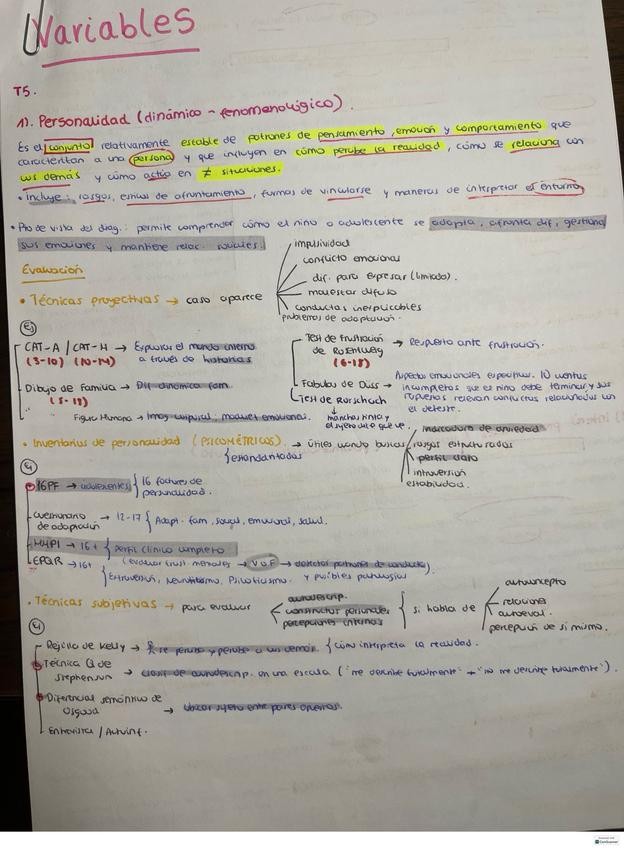 Variables
T5.
1). Personalidad (dinámico - fenomenológico).
Es el conjunto relativamente estable de patrones de pensamiento, emoción y comportamiento que
caracterizan a una persona y que influyen en cómo percibe la realidad, cómo se relaciona con
los demás y cómo actúa en ≠ situaciones.
• Incluye: rasgos, estilos de afrontamiento, formas de vincularse y maneras de interpretar el entorno
• Pto de vista del diag.: permite comprender cómo el niño o adolescente se adapta, afronta dif, gestiona
sus emociones y mantiene relac. sociales.
Evaluación
• Técnicas proyectivas → caso aparece
impulsividad
conflicto emocional
dif. para expresar (limitado).
malestar difuso
conductas inexplicables
problemas de adaptación.
Ej
CAT-A / CAT-H → Explorar el mundo interno
(3-10) (10-14) a través de historias
Dibujo de Familia → Dif dinámica fam.
(5-18)
" " Figura Humana → Imag corporal;
Test de frustración
de Rosenzweig → Respuesta ante frustración.
(6-18)
Fábulas de Düss → Aspectos emocionales específicos. 10 cuentos
incompletos que el niño debe terminar y sus
respuestas revelan conflictos relacionados con
el
Test de Rorschach
manchas tinta y
el sujeto dice que ve.
• Inventarios de personalidad (PSICOMÉTRICOS). → útiles cuando buscas
estandarizados
indicadores de ansiedad
rasgos estructurados
perfil claro
introversión
estabilidad.
Ej
16PF → adolescentes { 16 factores de
personalidad.
Cuestionario
de adaptación → 12-17 { Adapt. fam, social, emocional, salud.
MMPI → 16+ { Perfil clínico completo
(evaluar trast. mentales → V o F → detectar patrones de conducta).
y posibles patologías
EPQR → 16+ { Extroversión, Neuroticismo, Psicoticismo
• Técnicas subjetivas → para evaluar
autodescrip.
constructos personales
percepciones internas
si habla de
autoconcepto
relaciones
autoeval.
percepción de si mismo.
Ej
Rejilla de Kelly → se percibe y percibe a los demás. { cómo interpreta la realidad.
Técnica Q de
Stephenson → clasif de autodescrip. en una escala ("me describe totalmente" → "no me describe totalmente").
Diferencial semántico de
Osgood → Ubicar sujeto entre pares opuestos.
Entrevista /
CamScanner